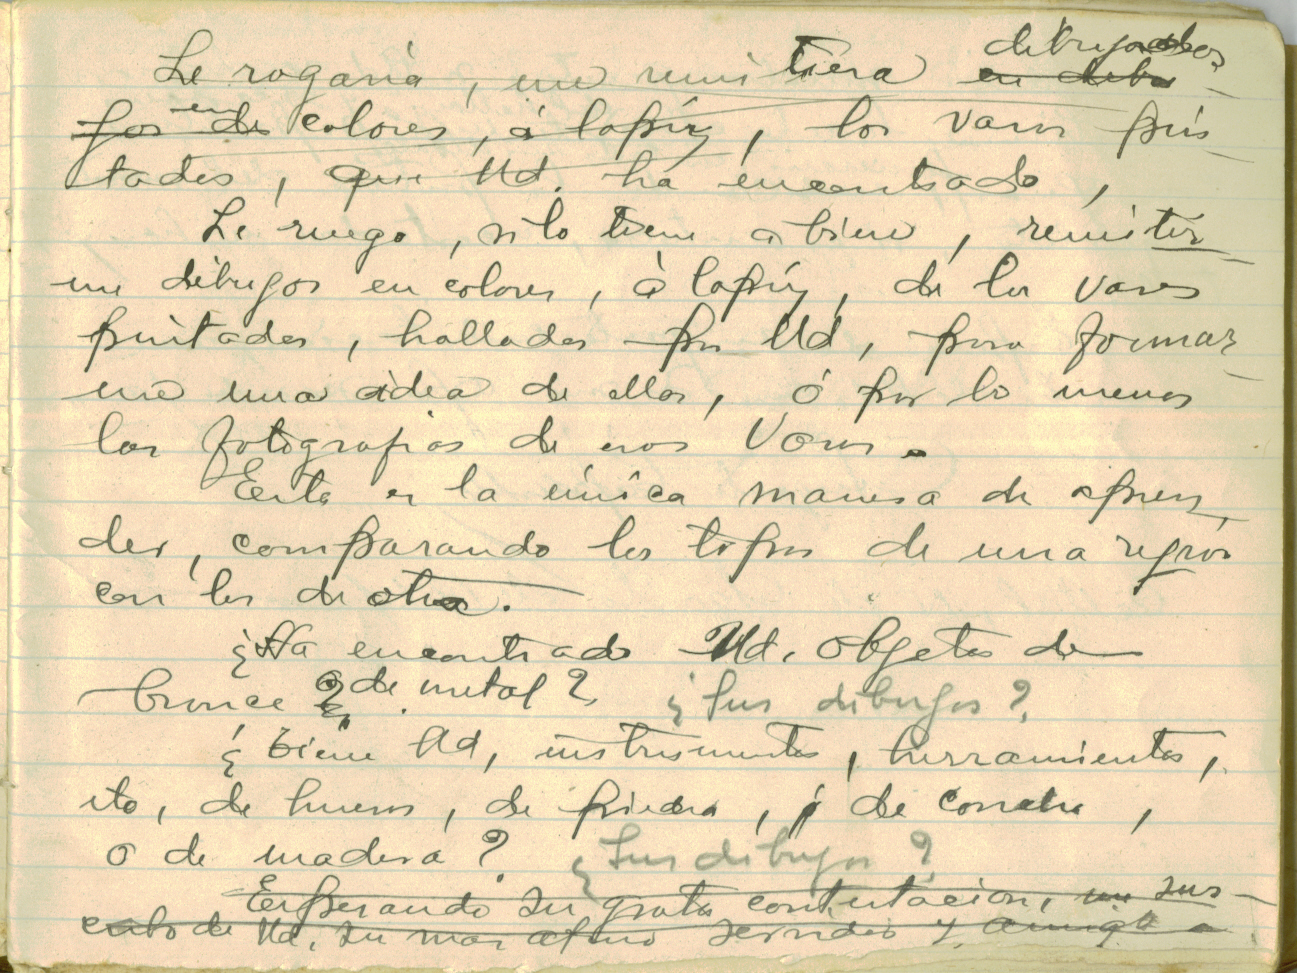 dibujados
Le rogaria, me remitiera en dibu-
jos de en colores, á lapíz, los vasos pin-
tados, que Ud. ha encontrado,
Le ruego, si lo tiene a bien, remitir-
me dibujos en colores, á lapíz, de los vasos
pintados, hallados por Ud, para formar-
me una idea de ellos, ó por lo menos
las fotografias de esos vasos.
Esta es la única manera de apren-
der, comparando los tipos de una región
con los de otra.
¿Ha encontrado Ud. objetos de
bronce ó de metal? ¿Sus dibujos?
¿Tiene Ud, instrumentos, herramientas,
etc, de hueso, de piedra, ó de concha,
o de madera? ¿Sus dibujos?
Esperando su grata contestacion, me sus-
cribo de Ud, su mas atento servidor y amigo